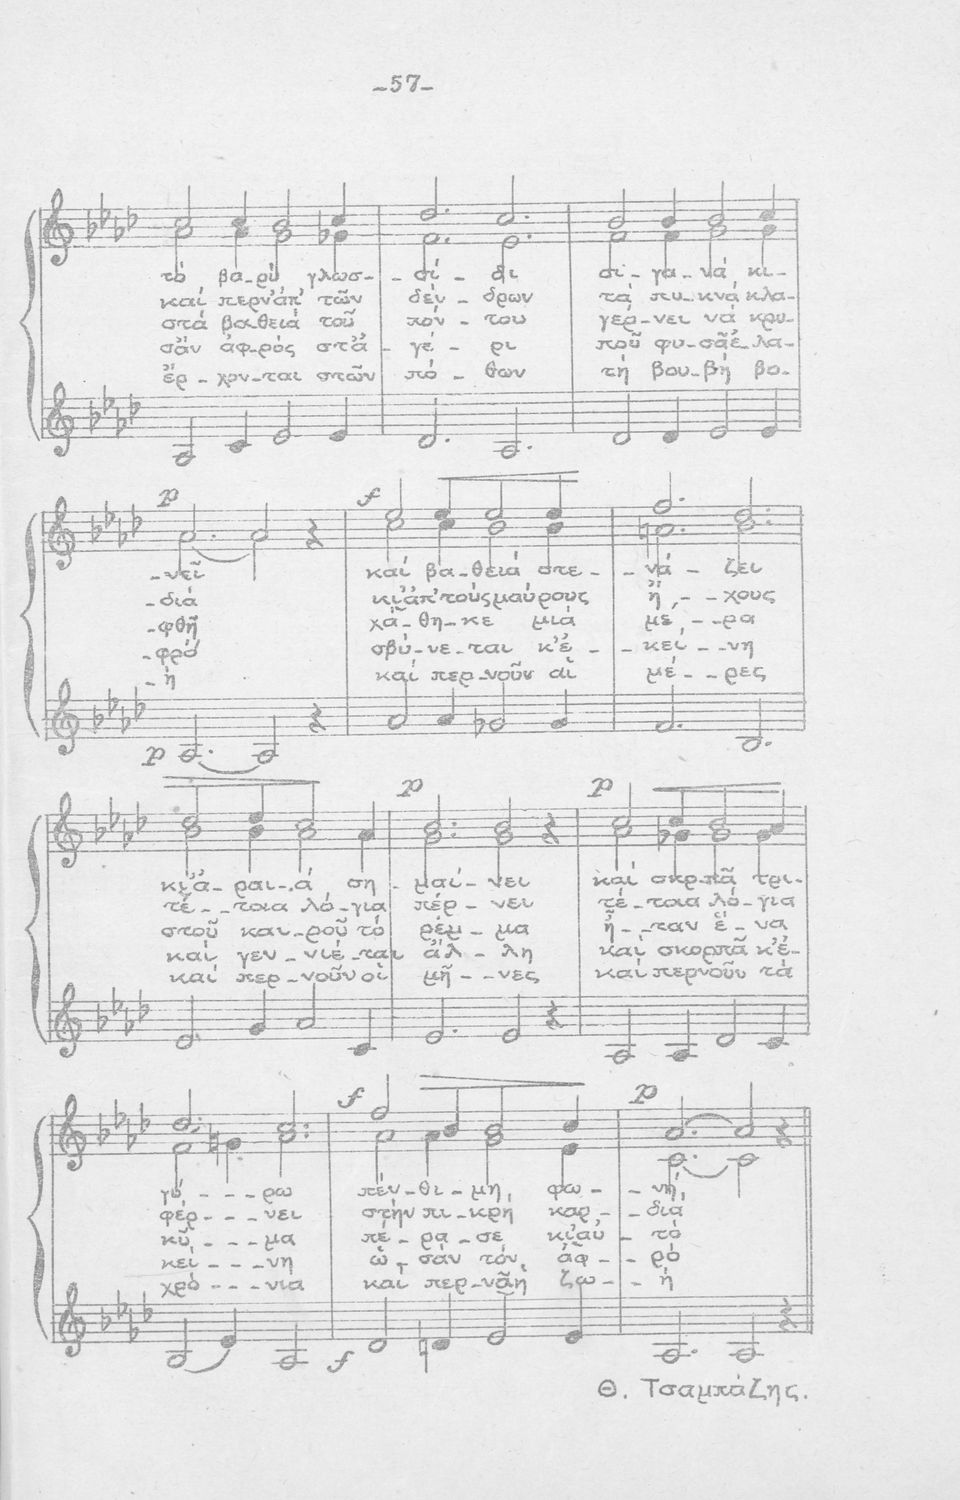 -57-
τό βα-ρύ γλωσ- - σί - δι σι-γα-νά κι-
καί περν'ἀπ' τῶν δέν - δρων τά πυ-κνά κλα-
στά βα-θειά τοῦ πόν - του γέρ-νει νά κρυ-
σἄν ἀφ-ρός στἀ - γέ - ρι ποῦ φυ-σᾶ λα-
ἔρ-χον-ται στῶν πό - θων τή βου-βή βο-
p f
-νεῖ καί βα-θειά στε- - νά - ζει
-διά κι'ἀπ' τούς μαύρους ἤ - - χους
-φθῆ χά-θη-κε μιά με - - ρα
-φρό σβύ-νε-ται κ'ἐ - - κεί - - νη
-ή καί περ-νοῦν αἱ μέ - - ρες
p
p p
κι'ἀ-ραι-ά ση - μαί - νει καί σκορ-πᾶ τρι-
τέ - - τοια λό-για πέρ - νει τέ-τοια λό-για
στοῦ και-ροῦ τό ρέμ - μα ἦ - -ταν ἕ - να
καί γεν - νιέ-ται ἄλ - λη καί σκορπᾶ κ'ἐ-
καί περ-νοῦν οἱ μῆ - - νες καί περνοῦν τά
f p
γύ - - - ρω πέν-θι-μη φω - - νή,
φέρ - - - νει στήν πι-κρη καρ - - διά
κῦ - - - μα πέ-ρα-σε κι'αὐ - τό
κεί - - - νη ὡ-σάν τόν ἀφ - - ρό
χρό - - - νια καί περ-νᾶ ἡ ζω - - ή
f
Θ. Τσαμπάζης.